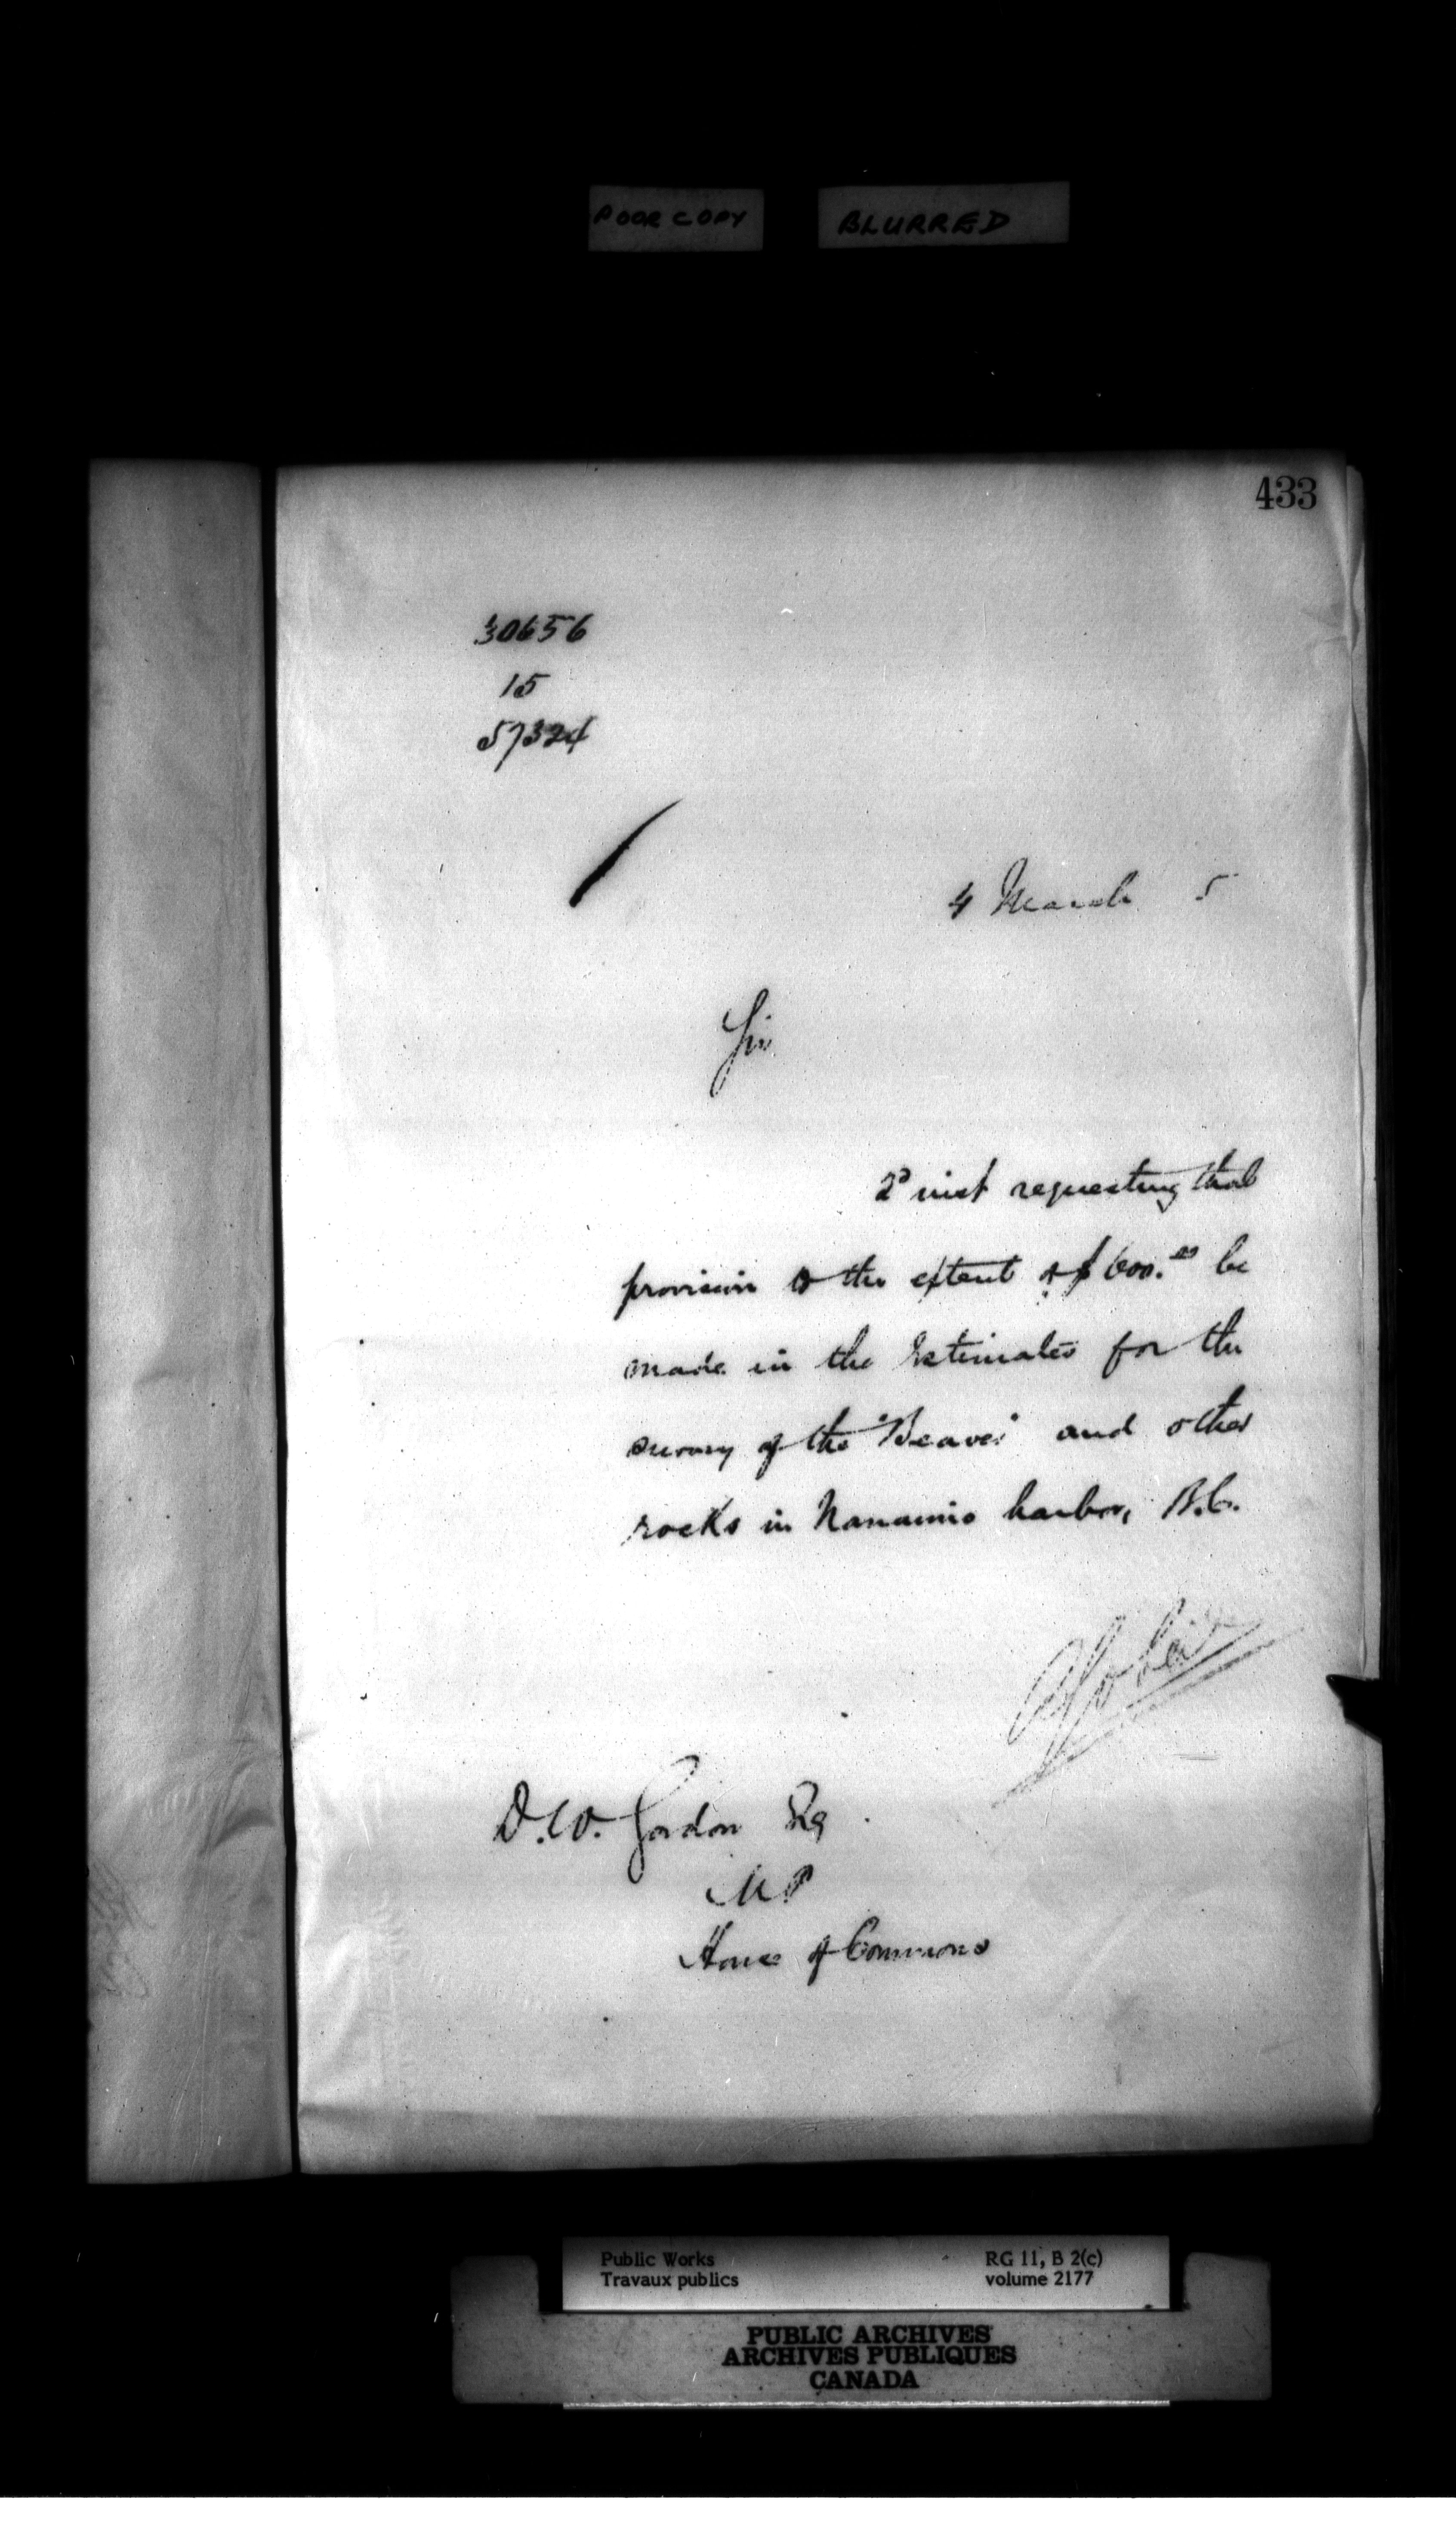 POOR COPY BLURRED
433
30656
15
57324
4 March 5
Sir
2d inst requesting that
provision to the extent of $600.00 be
made in the Estimates for the
survey of the "Beaver" and other
rocks in Nanaimo harbor, B.C.
D.W. Gordon Esq
MP
House of Commons
Public Works RG 11, B 2(c)
Travaux publics volume 2177
PUBLIC ARCHIVES
ARCHIVES PUBLIQUES
CANADA